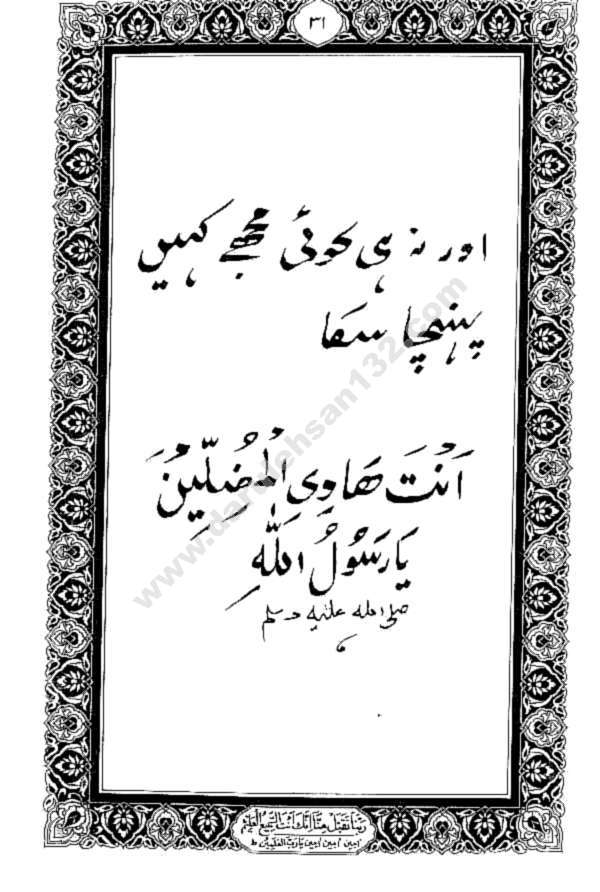 ٣١
اور نہ ہی کوئی مجھے کہیں
پہنچا سکا
اَنْتَ هَادِی الْمُضِلِّیْنَ
یَا رَسُوْلُ اللّٰهِ
صلی اللہ علیہ وسلم
www.darulehsan132.com
ربنا تقبل منا انك انت السميع العليم
امين امين امين يا رب العلمين ط